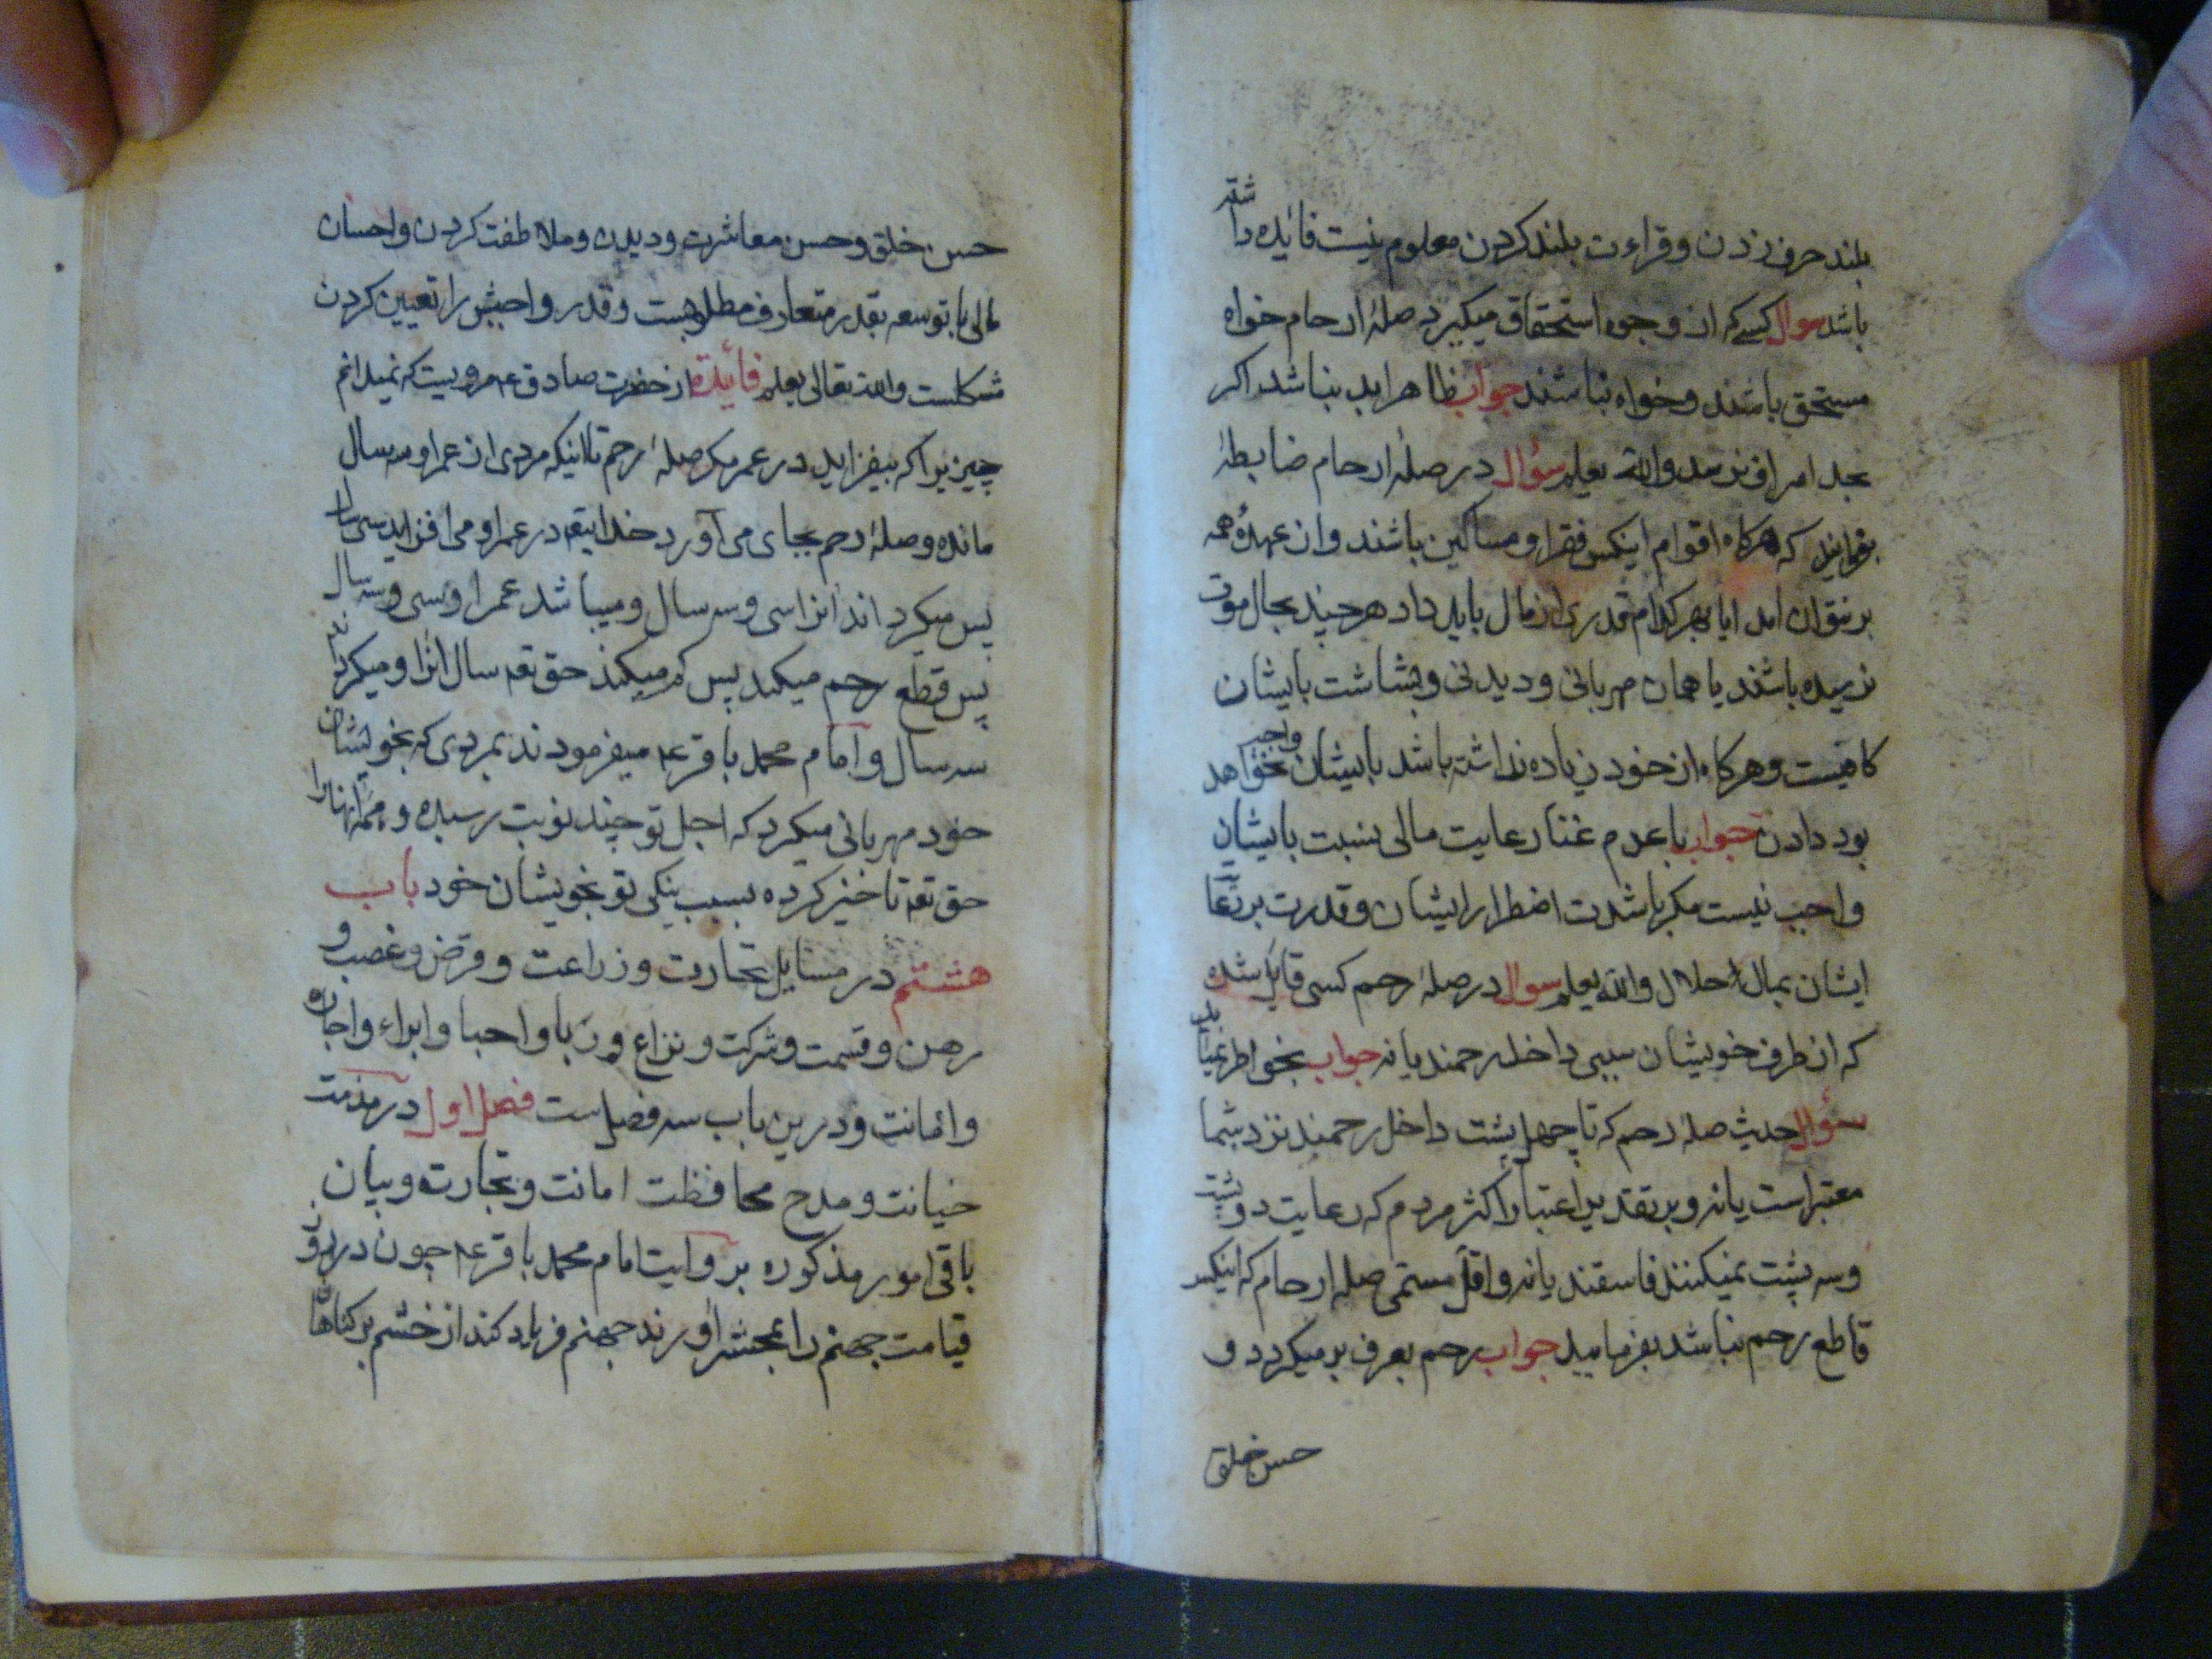 بلند حرف زدن و قراءت بلند کردن معلوم نیست فائده داشته
باشد سوال کسے که از وجوه استحقاق میگیرد صلهٔ ارحام خواه
مستحق باشند و خواه نباشند جواب ظاهرا بد نباشد اگر
بحد اسراف نرسد والله یعلم سؤال در صلهٔ ارحام ضابطهٔ
بفرمایند که هرکاه اقوام اینکس فقرا و مساکین باشند و از عهدهٔ همه
بر نتوان امد ایا بهر کدام قدری از مال باید داد هر چند بحال موت
نرسیده باشند یا همان مهربانی و دیدنی و بشاشت بایشان
کافیست و هرکاه از خود زیاده نداشته باشد بایشان واجب نخواهد
بود دادن جواب با عدم غنا رعایت مالی بنسبت بایشان
واجب نیست مکر با شدت اضطرار ایشان و قدرت بر
ایشان بمال حلال والله یعلم سوال در صلهٔ رحم کسی قایل شده
که از طرف خویشان سببی داخل رحمند یا نه جواب بخواطر نمیاید
سؤال حدیث صله رحم که تا چهل پشت داخل رحمند نزد شما
معتبر است یا نه و بر تقدیر اعتبار اکثر مردم که رعایت دو پشت
و سه پشت نمیکنند فاسقند یا نه و اقل مستمی صله ارحام که اینکس
قاطع رحم نباشد بفرمایید جواب رحم بعرف بر میکردد و
حسن خلق
حسن خلق و حسن معاشرت و دیدن و ملاطفت کردن و احسان
مالی با توسعه بقدر متعارف مطلوبست و قدر واجبش را تعیین کردن
مشکلست والله تعالی یعلم فائیده از حضرت صادق ع مرویست که نمیدانم
چیزیرا که بیفزاید در عمر مکر صلهٔ رحم تا اینکه مردی از عمر او سه سال
مانده و صلهٔ رحم بجای می آورد خدایتعه در عمر او می افزاید سی سال
پس میکرداند انرا سی و سه سال و میباشد عمر او سی و سه سال
پس قطع رحم میکند پس کم میکند حق تعه سال انرا و میکرداند
سه سال و امام محمد باقر ع میفرمودند بمردی که بخویشان
خود مهربانی میکرد که اجل تو چند نوبت رسیده و همه آنها را
حق تعه تاخیر کرده بسبب نیکی تو بخویشان خود باب
هشتم در مسایل تجارت و زراعت و قرض و غصب و
رهن و قسمت و شرکت و نزاع و ربا و احیا و ابراء و اجاره
و امانت و درین باب سه فصلست فصل اول در مذمت
خیانت و مدح محافظت امانت و تجارت و بیان
باقی امور مذکوره بروایت امام محمد باقر ع چون در روز
قیامت جهنم را بمحشر اورند جهنم فریاد کند از خشم بر کناهان